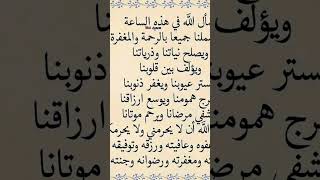 أل اللّه في هذه الساعة
ملنا جميعا بالرّحمة والمغفرة
ويصلح نياتنا وذرياتنا
ويؤلف بين قلوبنا
ستر عيوبنا ويغفر ذنوبنا
رج همومنا ويوسع ارزاقنا
شفي مرضانا ويرحم موتانا
اللّه أن لا يحرمني ولا يحرمك
فوه وعافيته ورزقه وتوفيقه
ه ومغفرته ورضوانه وجنته